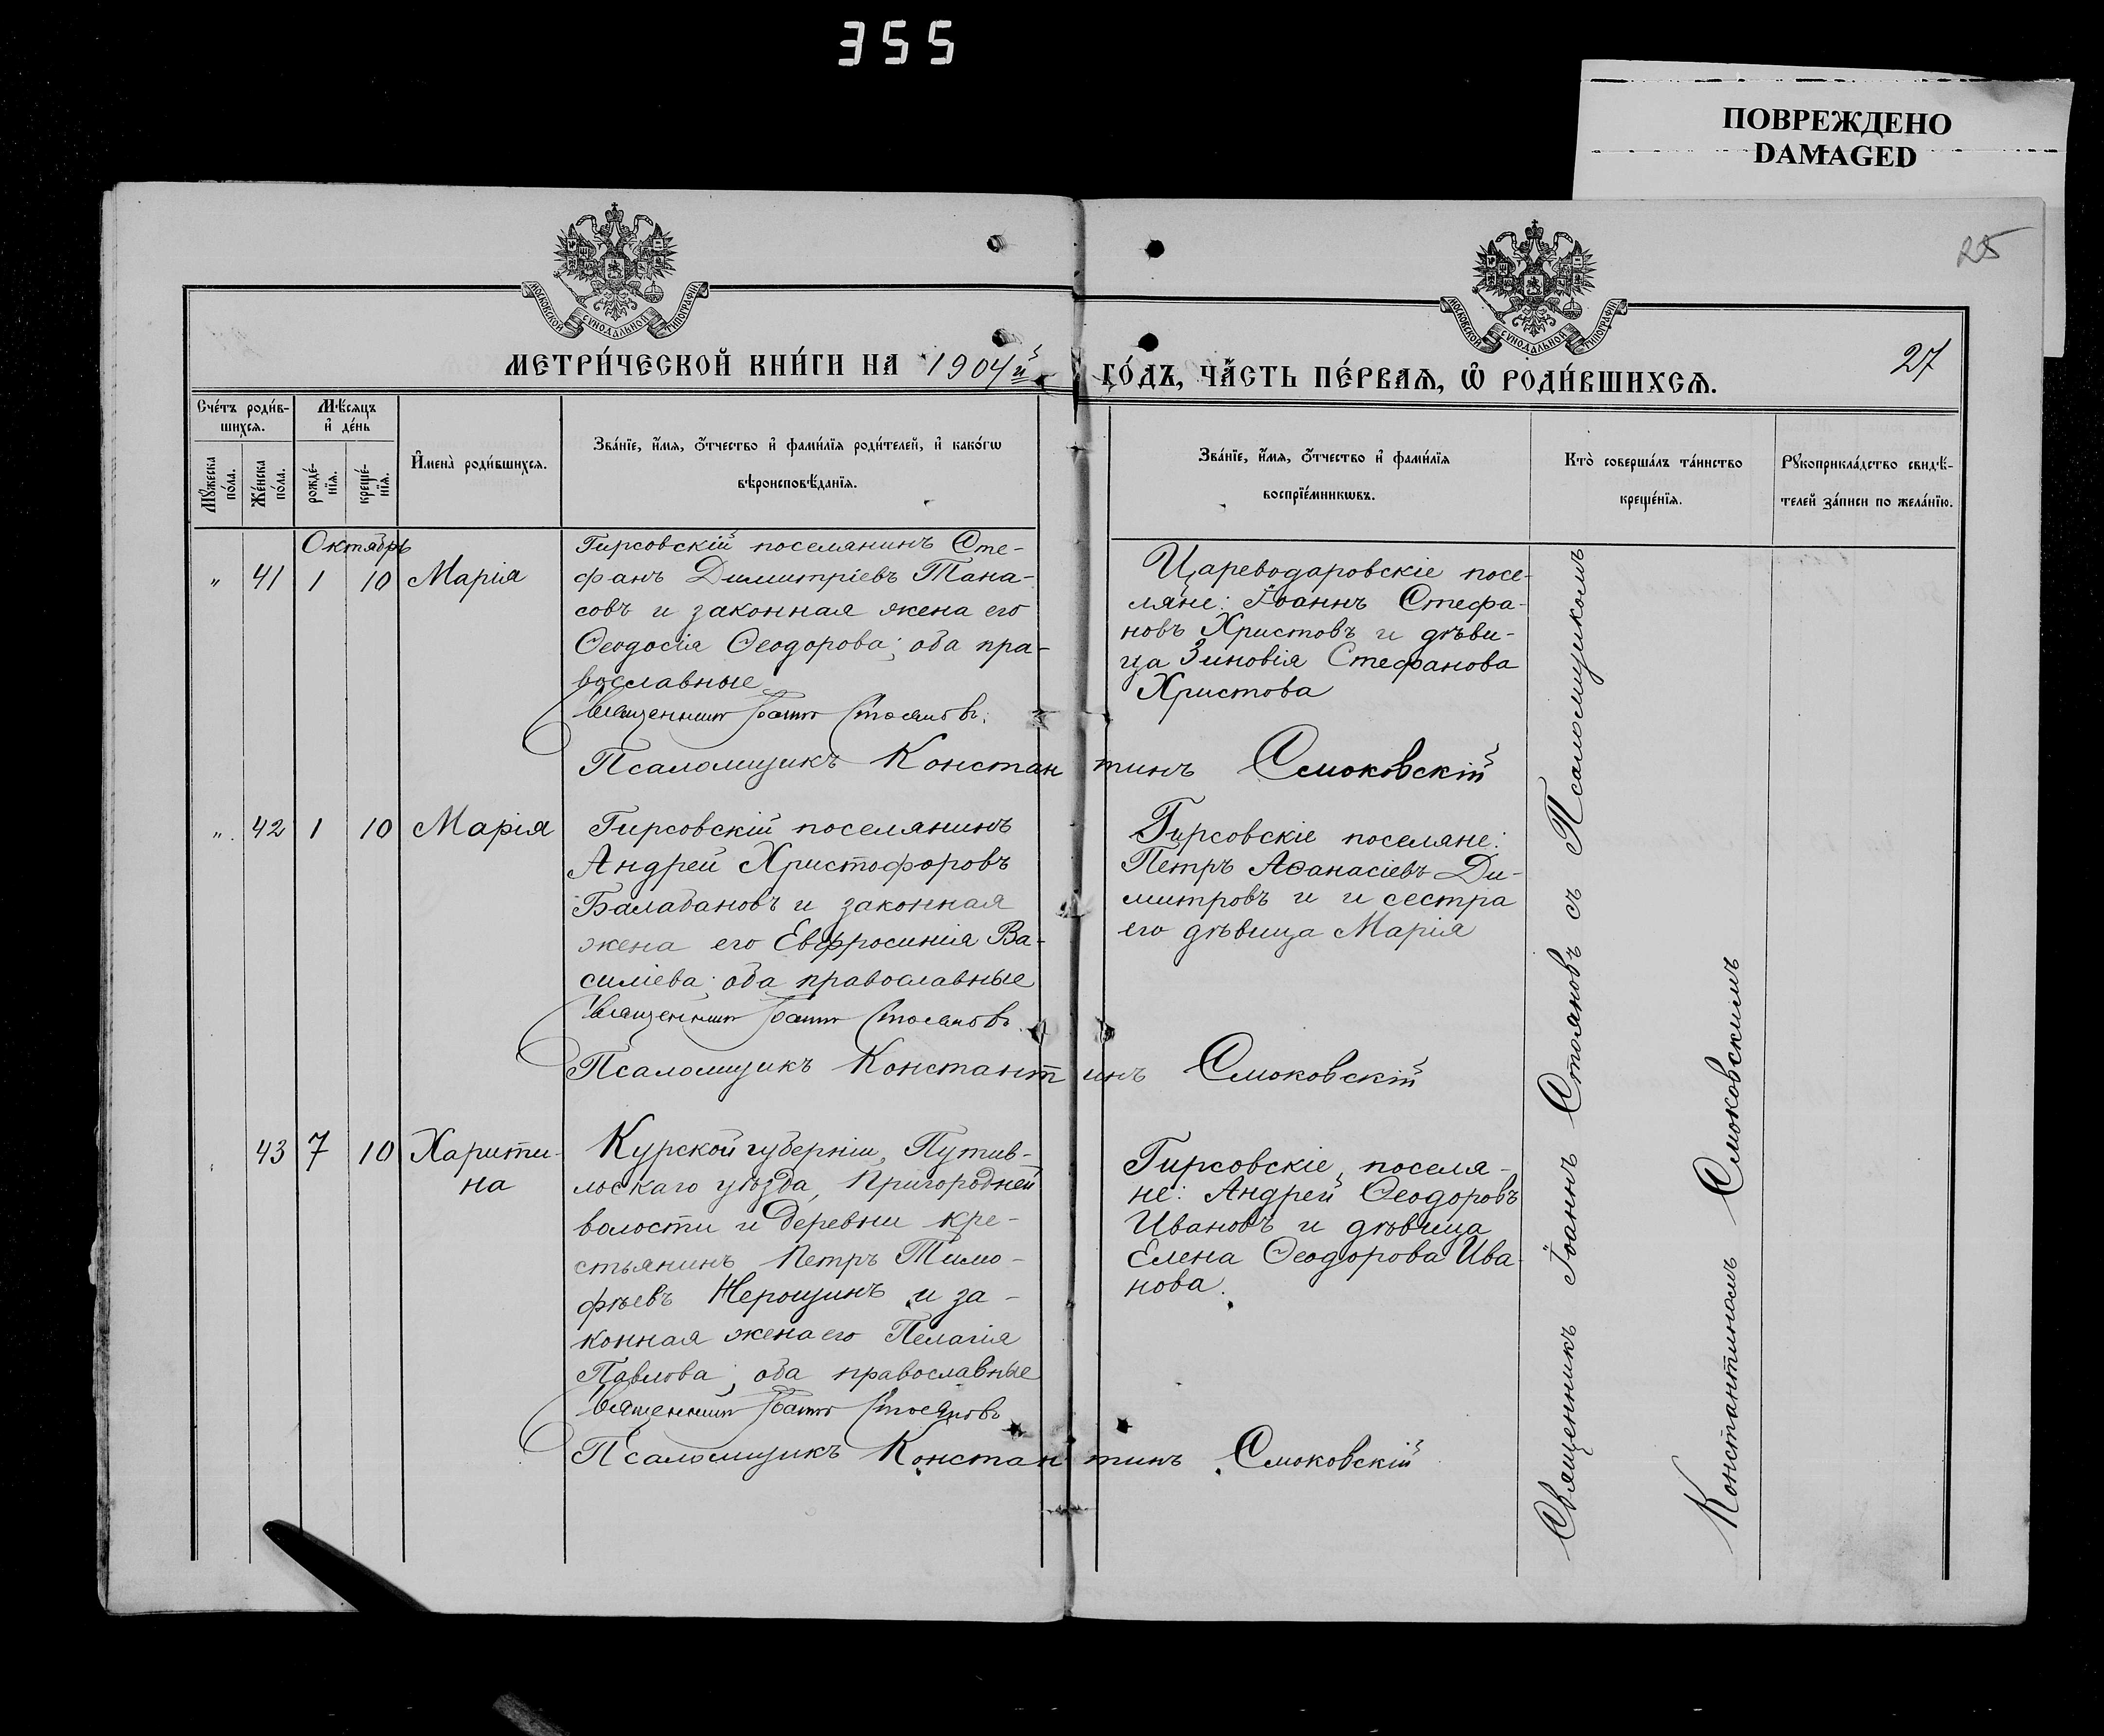 355
ПОВРЕЖДЕНО
DAMAGED
25
МОСКОВСКОЙ СУНОДАЛЬНОЙ ТИПОГРАФІИ
МОСКОВСКОЙ СУНОДАЛЬНОЙ ТИПОГРАФІИ
МЕТРИ́ЧЕСКОЙ КНИ́ГИ НА 1904й
ГО́ДЪ, ЧА́СТЬ ПЕ́РВАѦ, Ѡ҆ РОДИ́ВШИХСѦ.
27
Сче́тъ роди́в-
шихсѧ.
Мѣ́сѧцъ
и҆ де́нь
Мꙋ́жеска
по́ла.
Же́нска
по́ла.
рожде́-
нїѧ.
креще́-
нїѧ.
И҆мена̀ роди́вшихсѧ.
Зва́нїе, и҆́мѧ, ѻ҆́тчество и҆ фами́лїѧ роди́телей, и҆ како́гѡ
вѣроисповѣ́данїѧ.
Зва́нїе, и҆́мѧ, ѻ҆́тчество и҆ фами́лїѧ
воспрїе́мникѡвъ.
Кто̀ соверша́лъ та́инство
креще́нїѧ.
Рꙋкоприкла́дство свидѣ́-
телей за́писи по жела́нїю.
Октябрь
" 41 1 10 Марія
Гирсовскій поселянинъ Сте-
фанъ Димитріевъ Тана-
совъ и законная жена его
Ѳеодосія Ѳеодорова; оба пра-
вославные
Священникъ Іоаннъ Стояновъ.
Псаломщикъ Константинъ Смоковскій
Цареводаровскіе посе-
ляне: Іоаннъ Стефа-
новъ Христовъ и дѣви-
ца Зиновія Стефанова
Христова
" 42 1 10 Марія
Гирсовскій поселянинъ
Андрей Христофоровъ
Балабановъ и законная
жена его Евфросинія Ва-
силіева; оба православные
Священникъ Іоаннъ Стояновъ
Псаломщикъ Константинъ Смоковскій
Гирсовскіе поселяне:
Петръ Аѳанасіевъ Ди-
митровъ и и сестра
его дѣвица Марія
43 7 10 Харити-
на
Курской губерніи, Путив-
льскаго уѣзда, Пригородней
волости и деревни кре-
стьянинъ Петръ Тимо-
фѣевъ Нерощинъ и за-
конная жена его Пелагія
Павлова; оба православные
Священникъ Іоаннъ Стояновъ
Псаломщикъ Константинъ Смоковскій
Гирсовскіе поселя-
не: Андрей Ѳеодоровъ
Ивановъ и дѣвица
Елена Ѳеодорова Ива-
нова.
Священникъ Іоаннъ Стояновъ съ Псаломщикомъ
Константиномъ Смоковскимъ